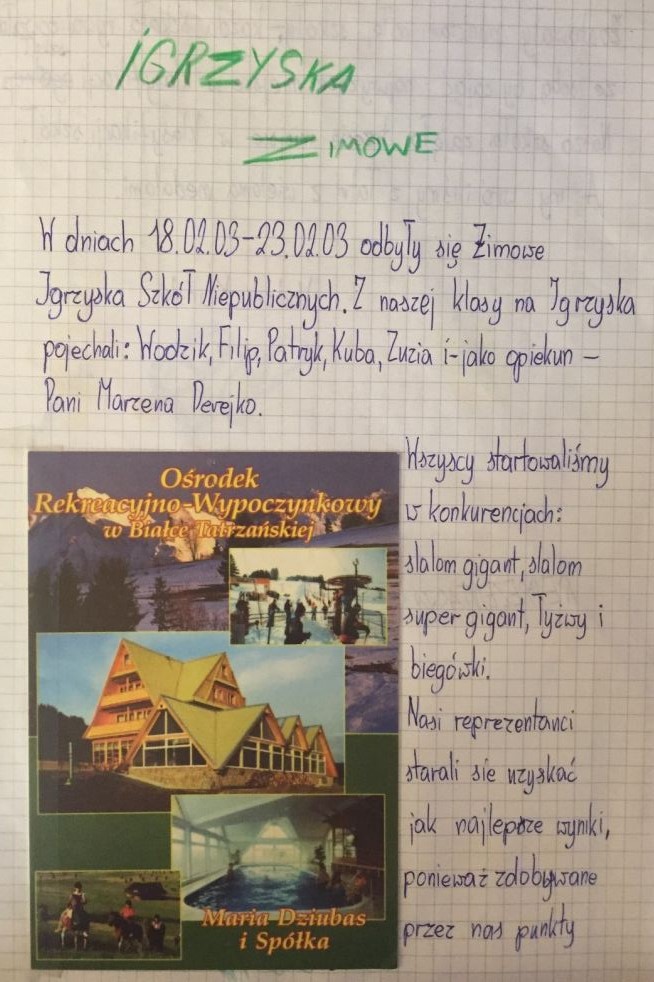 IGRZYSKA
ZIMOWE
W dniach 18.02.03-23.02.03 odbyły się Zimowe
Igrzyska Szkół Niepublicznych. Z naszej klasy na Igrzyska
pojechali: Wodzik, Filip, Patryk, Kuba, Zuzia i-jako opiekun –
Pani Marzena Derejko.
Ośrodek
Rekreacyjno-Wypoczynkowy
w Białce Tatrzańskiej
Maria Dziubas
i Spółka
Wszyscy startowaliśmy
w konkurencjach:
slalom gigant, slalom
super gigant, łyżwy i
biegówki.
Nasi reprezentanci
starali sie uzyskać
jak najlepsze wyniki,
ponieważ zdobywane
przez nas punkty